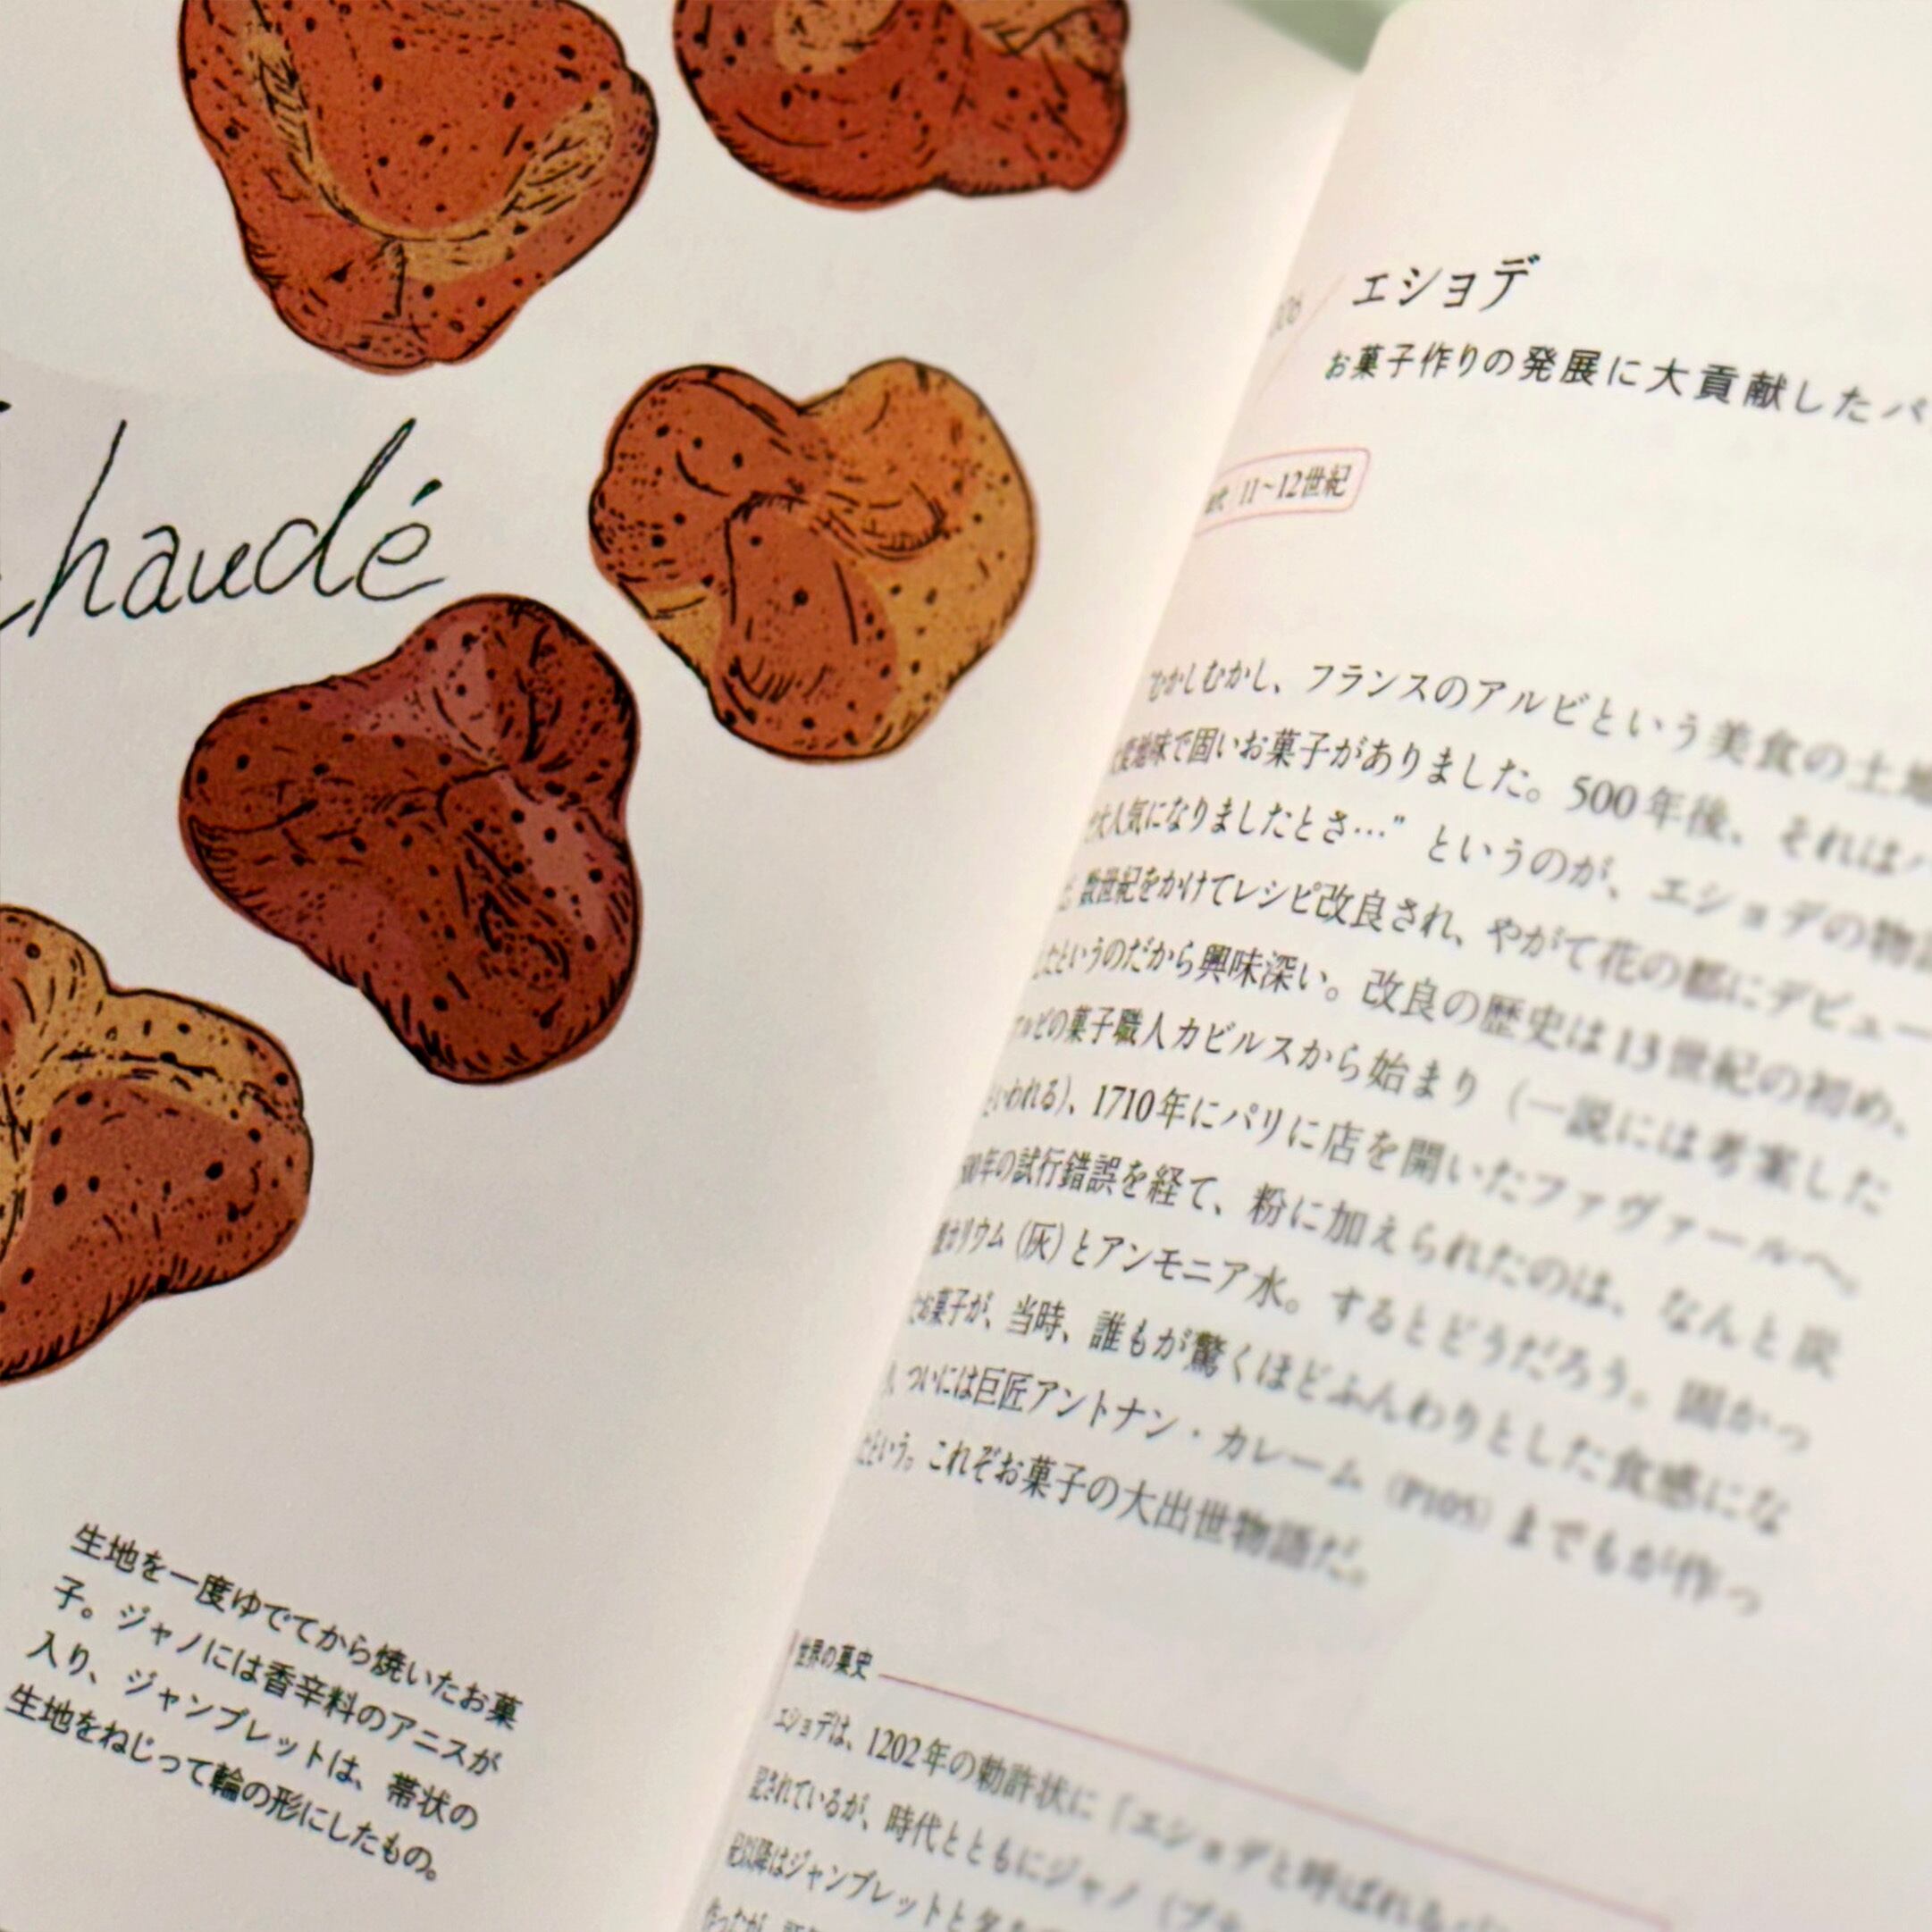 haudé
生地を一度ゆでてから焼いたお菓
子。ジャノには香辛料のアニスが
入り、ジャンブレットは、帯状の
生地をねじって輪の形にしたもの。
エショデ
お菓子作りの発展に大貢献したパ
11~12世紀
"むかしむかし、フランスのアルビという美食の土地
地味で固いお菓子がありました。500年後、それは
大人気になりましたとさ…” というのが、エショデの物語
数世紀をかけてレシピ改良され、やがて花の都にデビュー
たというのだから興味深い。改良の歴史は13世紀の初め、
アルビの菓子職人カビルスから始まり（一説には考案した
といわれる）、1710年にパリに店を開いたファヴァールへ。
500年の試行錯誤を経て、粉に加えられたのは、なんと炭
酸カリウム（灰）とアンモニア水。するとどうだろう。固かっ
たお菓子が、当時、誰もが驚くほどふんわりとした食感にな
り、ついには巨匠アントナン・カレーム（P105）までもが作っ
たという。これぞお菓子の大出世物語だ。
世界の菓史
エショデは、1202年の勅許状に「エショデと呼ばれる
記されているが、時代とともにジャノ（
紀以降はジャンブレットと
作ったが、